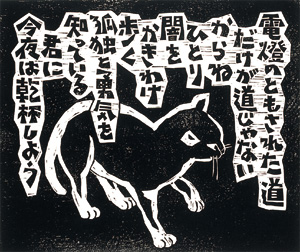 電燈のともされた道
だけが道じゃない
からね
ひとり
闇を
かきわけ
歩く
孤独と勇気を
知っている
君に
今夜は乾杯しよう